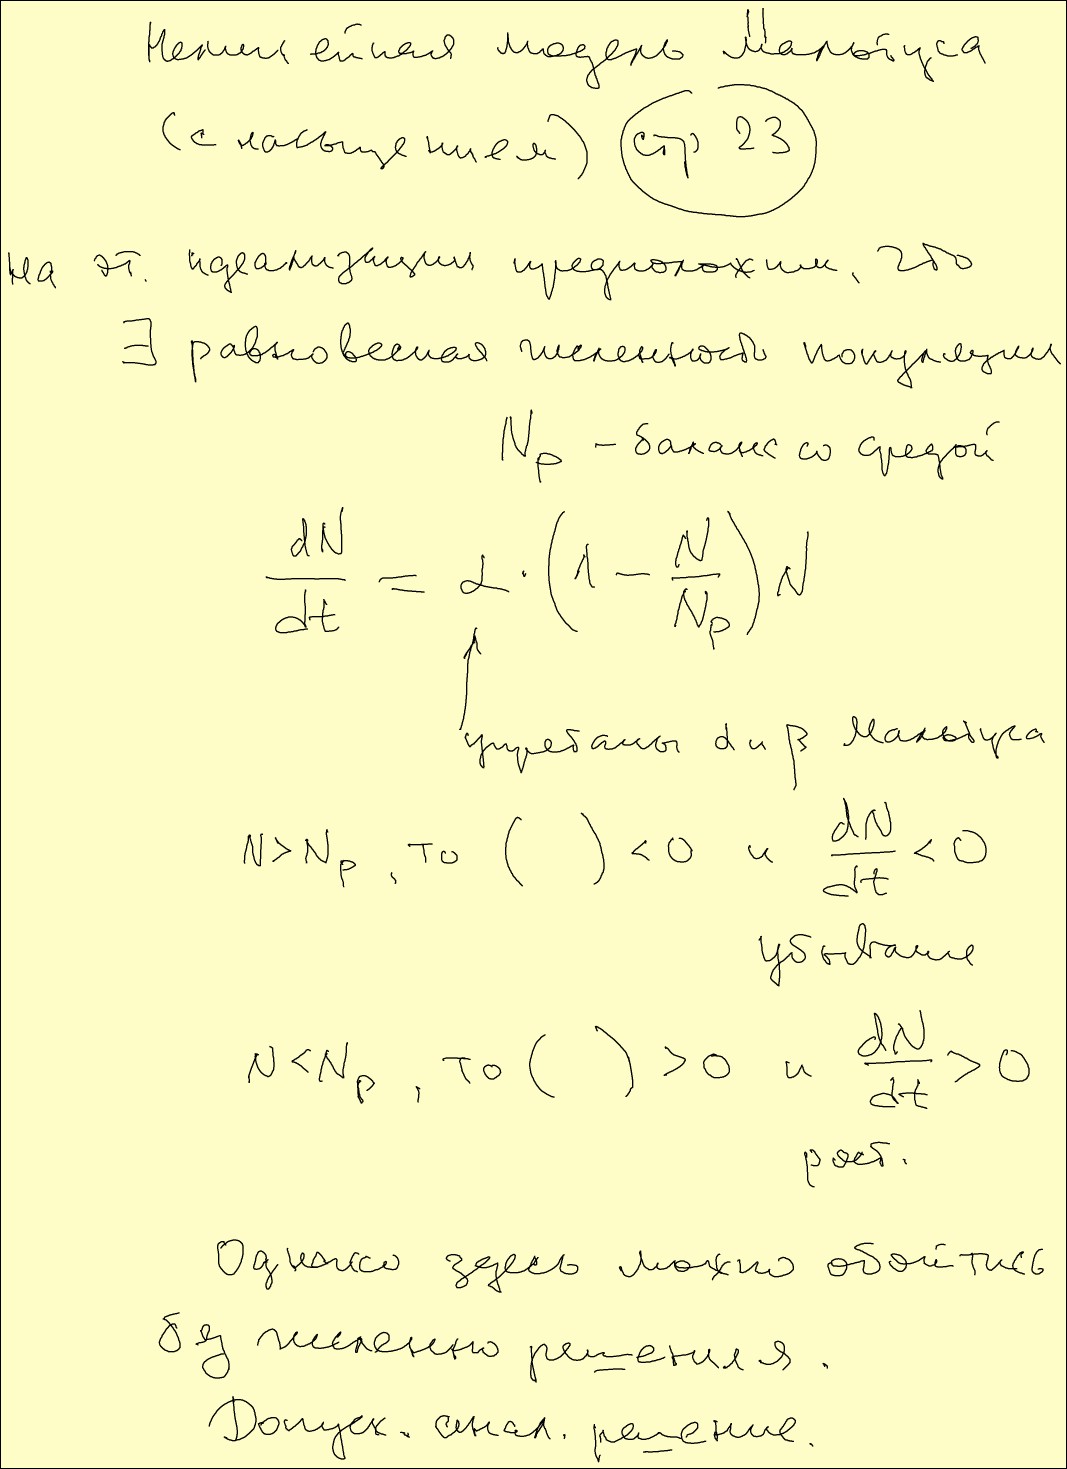 Нелинейная модель Мальтуса
(с насыщением) стр 23
На эт. идеализации предположим, что
∃ равновесная численность популяции
N_p – баланс со средой
dN/dt = α · (1 – N/N_p) N
упрятаны α и β Мальтуса
N > N_p, то ( ) < 0 и dN/dt < 0
убывание
N < N_p, то ( ) > 0 и dN/dt > 0
рост.
Однако здесь можно обойтись
без численно решения.
Допуск. анал. решение.